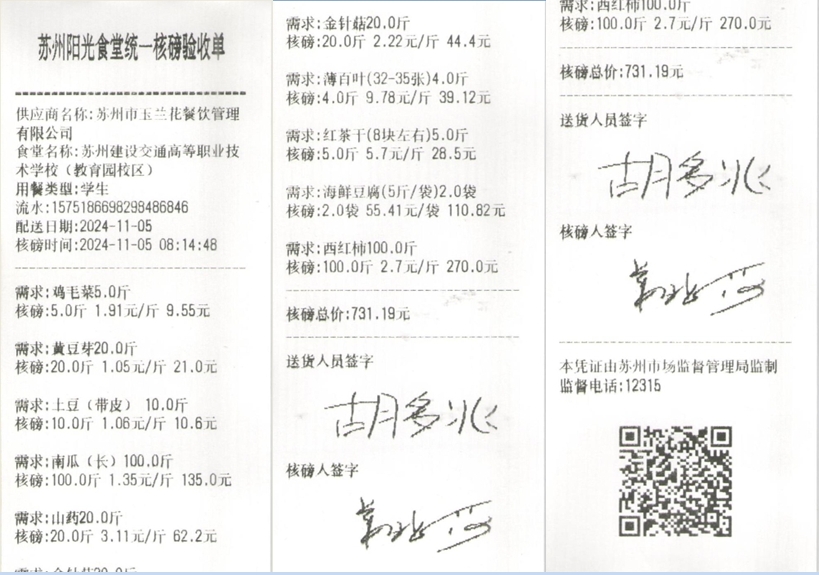 苏州阳光食堂统一核磅验收单
供应商名称:苏州市玉兰花餐饮管理
有限公司
食堂名称:苏州建设交通高等职业技
术学校（教育园校区）
用餐类型:学生
流水:1575186698298486846
配送日期:2024-11-05
核磅时间:2024-11-05 08:14:48
需求:鸡毛菜5.0斤
核磅:5.0斤 1.91元/斤 9.55元
需求:黄豆芽20.0斤
核磅:20.0斤 1.05元/斤 21.0元
需求:土豆（带皮） 10.0斤
核磅:10.0斤 1.06元/斤 10.6元
需求:南瓜（长）100.0斤
核磅:100.0斤 1.35元/斤 135.0元
需求:山药20.0斤
核磅:20.0斤 3.11元/斤 62.2元
需求:金针菇20.0斤
核磅:20.0斤 2.22元/斤 44.4元
需求:薄百叶(32-35张)4.0斤
核磅:4.0斤 9.78元/斤 39.12元
需求:红茶干(8块左右)5.0斤
核磅:5.0斤 5.7元/斤 28.5元
需求:海鲜豆腐(5斤/袋)2.0袋
核磅:2.0袋 55.41元/袋 110.82元
需求:西红柿100.0斤
核磅:100.0斤 2.7元/斤 270.0元
核磅总价:731.19元
送货人员签字
胡多兆
核磅人签字
需求:西红柿100.0斤
核磅:100.0斤 2.7元/斤 270.0元
核磅总价:731.19元
送货人员签字
胡多兆
核磅人签字
本凭证由苏州市场监督管理局监制
监督电话:12315